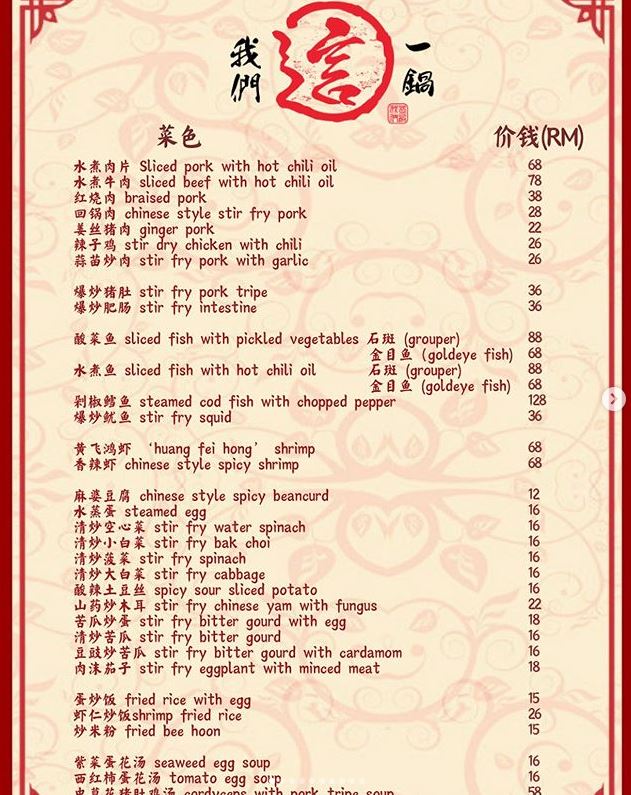 我們 這 一鍋
菜色 价钱(RM)
水煮肉片 Sliced pork with hot chili oil 68
水煮牛肉 sliced beef with hot chili oil 78
红烧肉 braised pork 38
回锅肉 chinese style stir fry pork 28
姜丝猪肉 ginger pork 22
辣子鸡 stir dry chicken with chili 26
蒜苗炒肉 stir fry pork with garlic 26
爆炒猪肚 stir fry pork tripe 36
爆炒肥肠 stir fry intestine 36
酸菜鱼 sliced fish with pickled vegetables 石斑 (grouper) 88
金目鱼 (goldeye fish) 68
水煮鱼 sliced fish with hot chili oil 石斑 (grouper) 88
金目鱼 (goldeye fish) 68
剁椒鳕鱼 steamed cod fish with chopped pepper 128
爆炒鱿鱼 stir fry squid 36
黄飞鸿虾 ‘huang fei hong’ shrimp 68
香辣虾 chinese style spicy shrimp 68
麻婆豆腐 chinese style spicy beancurd 12
水蒸蛋 steamed egg 16
清炒空心菜 stir fry water spinach 16
清炒小白菜 stir fry bak choi 16
清炒菠菜 stir fry spinach 16
清炒大白菜 stir fry cabbage 16
酸辣土豆丝 spicy sour sliced potato 16
山药炒木耳 stir fry chinese yam with fungus 22
苦瓜炒蛋 stir fry bitter gourd with egg 18
清炒苦瓜 stir fry bitter gourd 16
豆豉炒苦瓜 stir fry bitter gourd with cardamom 16
肉沫茄子 stir fry eggplant with minced meat 18
蛋炒饭 fried rice with egg 15
虾仁炒饭shrimp fried rice 26
炒米粉 fried bee hoon 15
紫菜蛋花汤 seaweed egg soup 16
西红柿蛋花汤 tomato egg soup 16
虫草花猪肚鸡汤 cordyceps with pork tripe soup 58